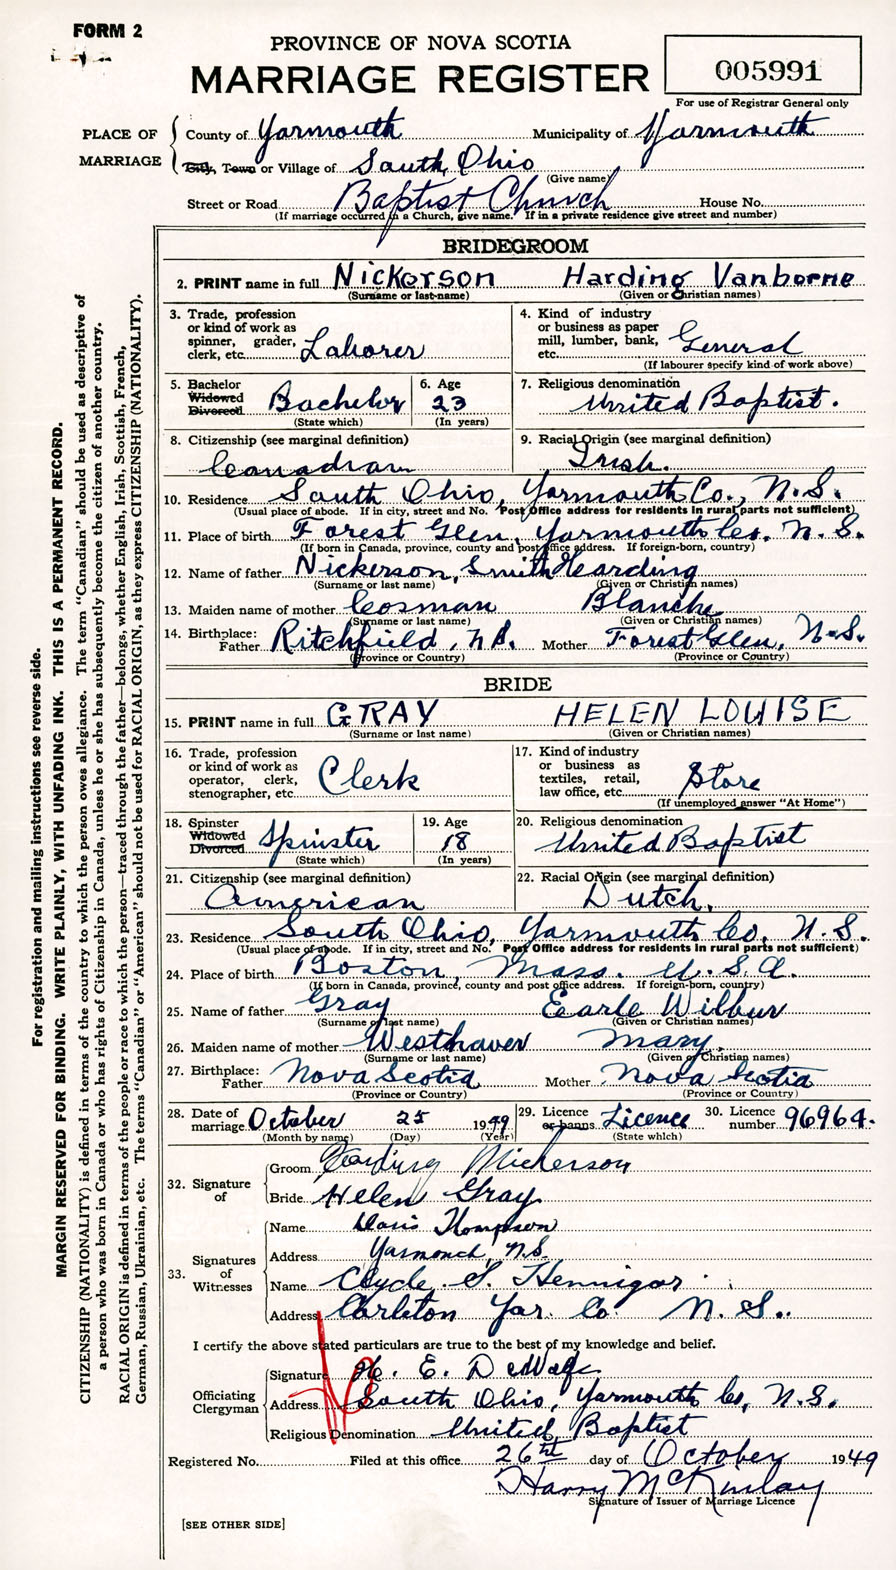 FORM 2
PROVINCE OF NOVA SCOTIA
MARRIAGE REGISTER
005991
For use of Registrar General only
PLACE OF MARRIAGE
County of Yarmouth Municipality of Yarmouth
City, Town or Village of South Ohio
(Give name)
Street or Road Baptist Church House No.
(If marriage occurred in a Church, give name. If in a private residence give street and number)
BRIDEGROOM
2. PRINT name in full Nickerson Harding Vanborne
(Surname or last name) (Given or Christian names)
3. Trade, profession or kind of work as spinner, grader, clerk, etc. Laborer
4. Kind of industry or business as paper mill, lumber, bank, etc. General
(If labourer specify kind of work above)
5. Bachelor Widowed Divorced Bachelor
(State which)
6. Age 23
(In years)
7. Religious denomination United Baptist.
8. Citizenship (see marginal definition) Canadian
9. Racial Origin (see marginal definition) Irish.
10. Residence South Ohio, Yarmouth Co., N.S.
(Usual place of abode. If in city, street and No. Post Office address for residents in rural parts not sufficient)
11. Place of birth Forest Glen, Yarmouth Co. N. S.
(If born in Canada, province, county and post office address. If foreign-born, country)
12. Name of father Nickerson, Smith Harding
(Surname or last name) (Given or Christian names)
13. Maiden name of mother Cosman Blanche
(Surname or last name) (Given or Christian names)
14. Birthplace: Father Ritchfield, N.S. Mother Forest Glen, N.S.
(Province or Country) (Province or Country)
BRIDE
15. PRINT name in full GRAY HELEN LOUISE
(Surname or last name) (Given or Christian names)
16. Trade, profession or kind of work as operator, clerk, stenographer, etc. Clerk
17. Kind of industry or business as textiles, retail, law office, etc. Store
(If unemployed answer "At Home")
18. Spinster Widowed Divorced Spinster
(State which)
19. Age 18
(In years)
20. Religious denomination United Baptist
21. Citizenship (see marginal definition) American
22. Racial Origin (see marginal definition) Dutch.
23. Residence South Ohio, Yarmouth Co, N.S.
(Usual place of abode. If in city, street and No. Post Office address for residents in rural parts not sufficient)
24. Place of birth Boston, Mass. U.S.A.
(If born in Canada, province, county and post office address. If foreign-born, country)
25. Name of father Gray Earle Wilbur
(Surname or last name) (Given or Christian names)
26. Maiden name of mother Westhaver Mary
(Surname or last name) (Given or Christian names)
27. Birthplace: Father Nova Scotia Mother Nova Scotia
(Province or Country) (Province or Country)
28. Date of marriage October 25 1949
(Month by name) (Day) (Year)
29. Licence or banns Licence
(State which)
30. Licence number 96964.
32. Signature of
Groom Harding Nickerson
Bride Helen Gray
33. Signatures of Witnesses
Name Doris Thompson
Address Yarmouth, N.S.
Name Clyde S. Hennigar
Address Carleton Yar. Co. N. S.
I certify the above stated particulars are true to the best of my knowledge and belief.
Officiating Clergyman
Signature H. E. DeWolfe
Address South Ohio, Yarmouth Co, N.S.
Religious Denomination United Baptist
Registered No. Filed at this office 26th day of October 1949
Harry McKinlay
Signature of Issuer of Marriage Licence
[SEE OTHER SIDE]
For registration and mailing instructions see reverse side.
MARGIN RESERVED FOR BINDING. WRITE PLAINLY, WITH UNFADING INK. THIS IS A PERMANENT RECORD.
CITIZENSHIP (NATIONALITY) is defined in terms of the country to which the person owes allegiance. The term "Canadian" should be used as descriptive of
a person who was born in Canada or who has rights of Citizenship in Canada, unless he or she has subsequently become the citizen of another country.
RACIAL ORIGIN is defined in terms of the people or race to which the person—traced through the father—belongs, whether English, Irish, Scottish, French,
German, Russian, Ukrainian, etc. The terms "Canadian" or "American" should not be used for RACIAL ORIGIN, as they express CITIZENSHIP (NATIONALITY).